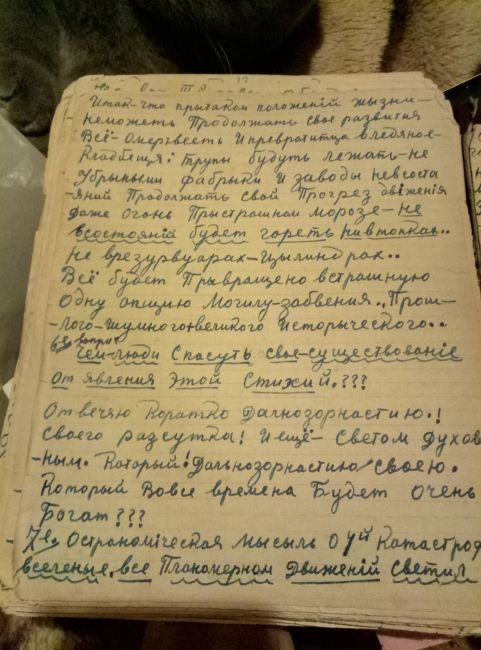 Итак-что прытаком положеній жызни-
неможеть Продолжать свое развития
Всё-омертвееть И превратитца вледяное-
Кладбещя: трупы будуть лежать-не
Убрыными фабрыки И заводы невсоста
-яний Продолжать свой Прогрез двіженія
даже огонь Прыстрашном морозе-не
всостояній будет гореть нивтопках..
не врезурвуарах-Цылиндрах..
Всё будет Прывращено встрашную
Одну опщию Могилу-забвения.. Прош-
-лого-шумного-великого Исторыческого..
6е вопрос
Чем-люди Спасуть свое-существованіе
От явления Этой Стихий.???
Отвечяю коратко Далнозорнастию.!
своего разсутка! И ещё- светом духов
-ным. Который! Дальнозорнастию своею.
Который Вовсе времена Будет Очень
Богат???
7е. Острономіческая Мысыль О 7й Катастроф
вселеные, все Планомерном Движеній Светил